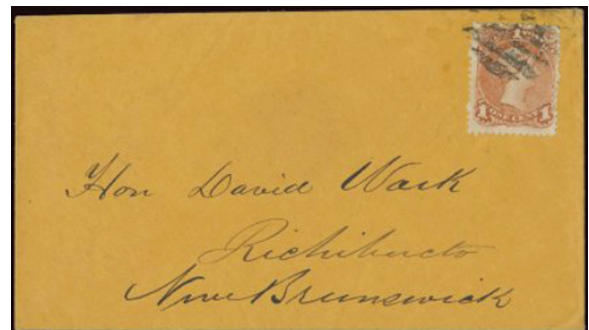 1 1
ONE CENT
Hon David Wark
Richibucto
New Brunswick